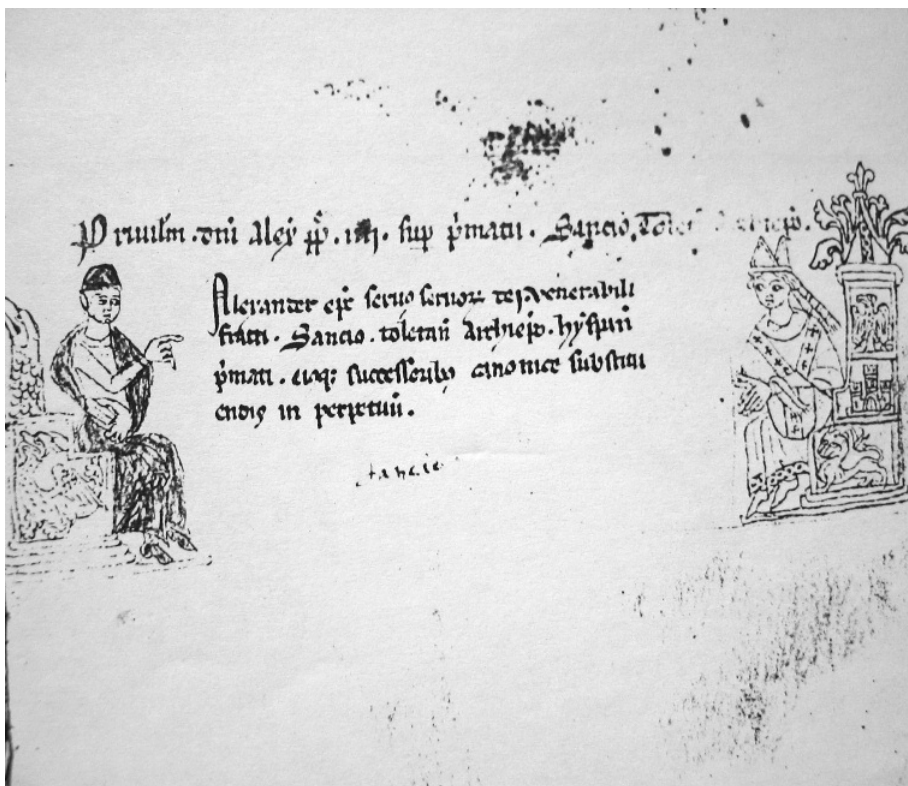 Priuilm. dni Alex pp. iiii. sup pmatu. Sancio, Tolet Archiepo.
Alexander epc seruus seruoꝝ dei. venerabili
fratri. Sancio. toletan Archiepo. hyspan
pmati. eiusqꝫ successoribꝫ canonice substitu
endis in perpetuū.
sancio